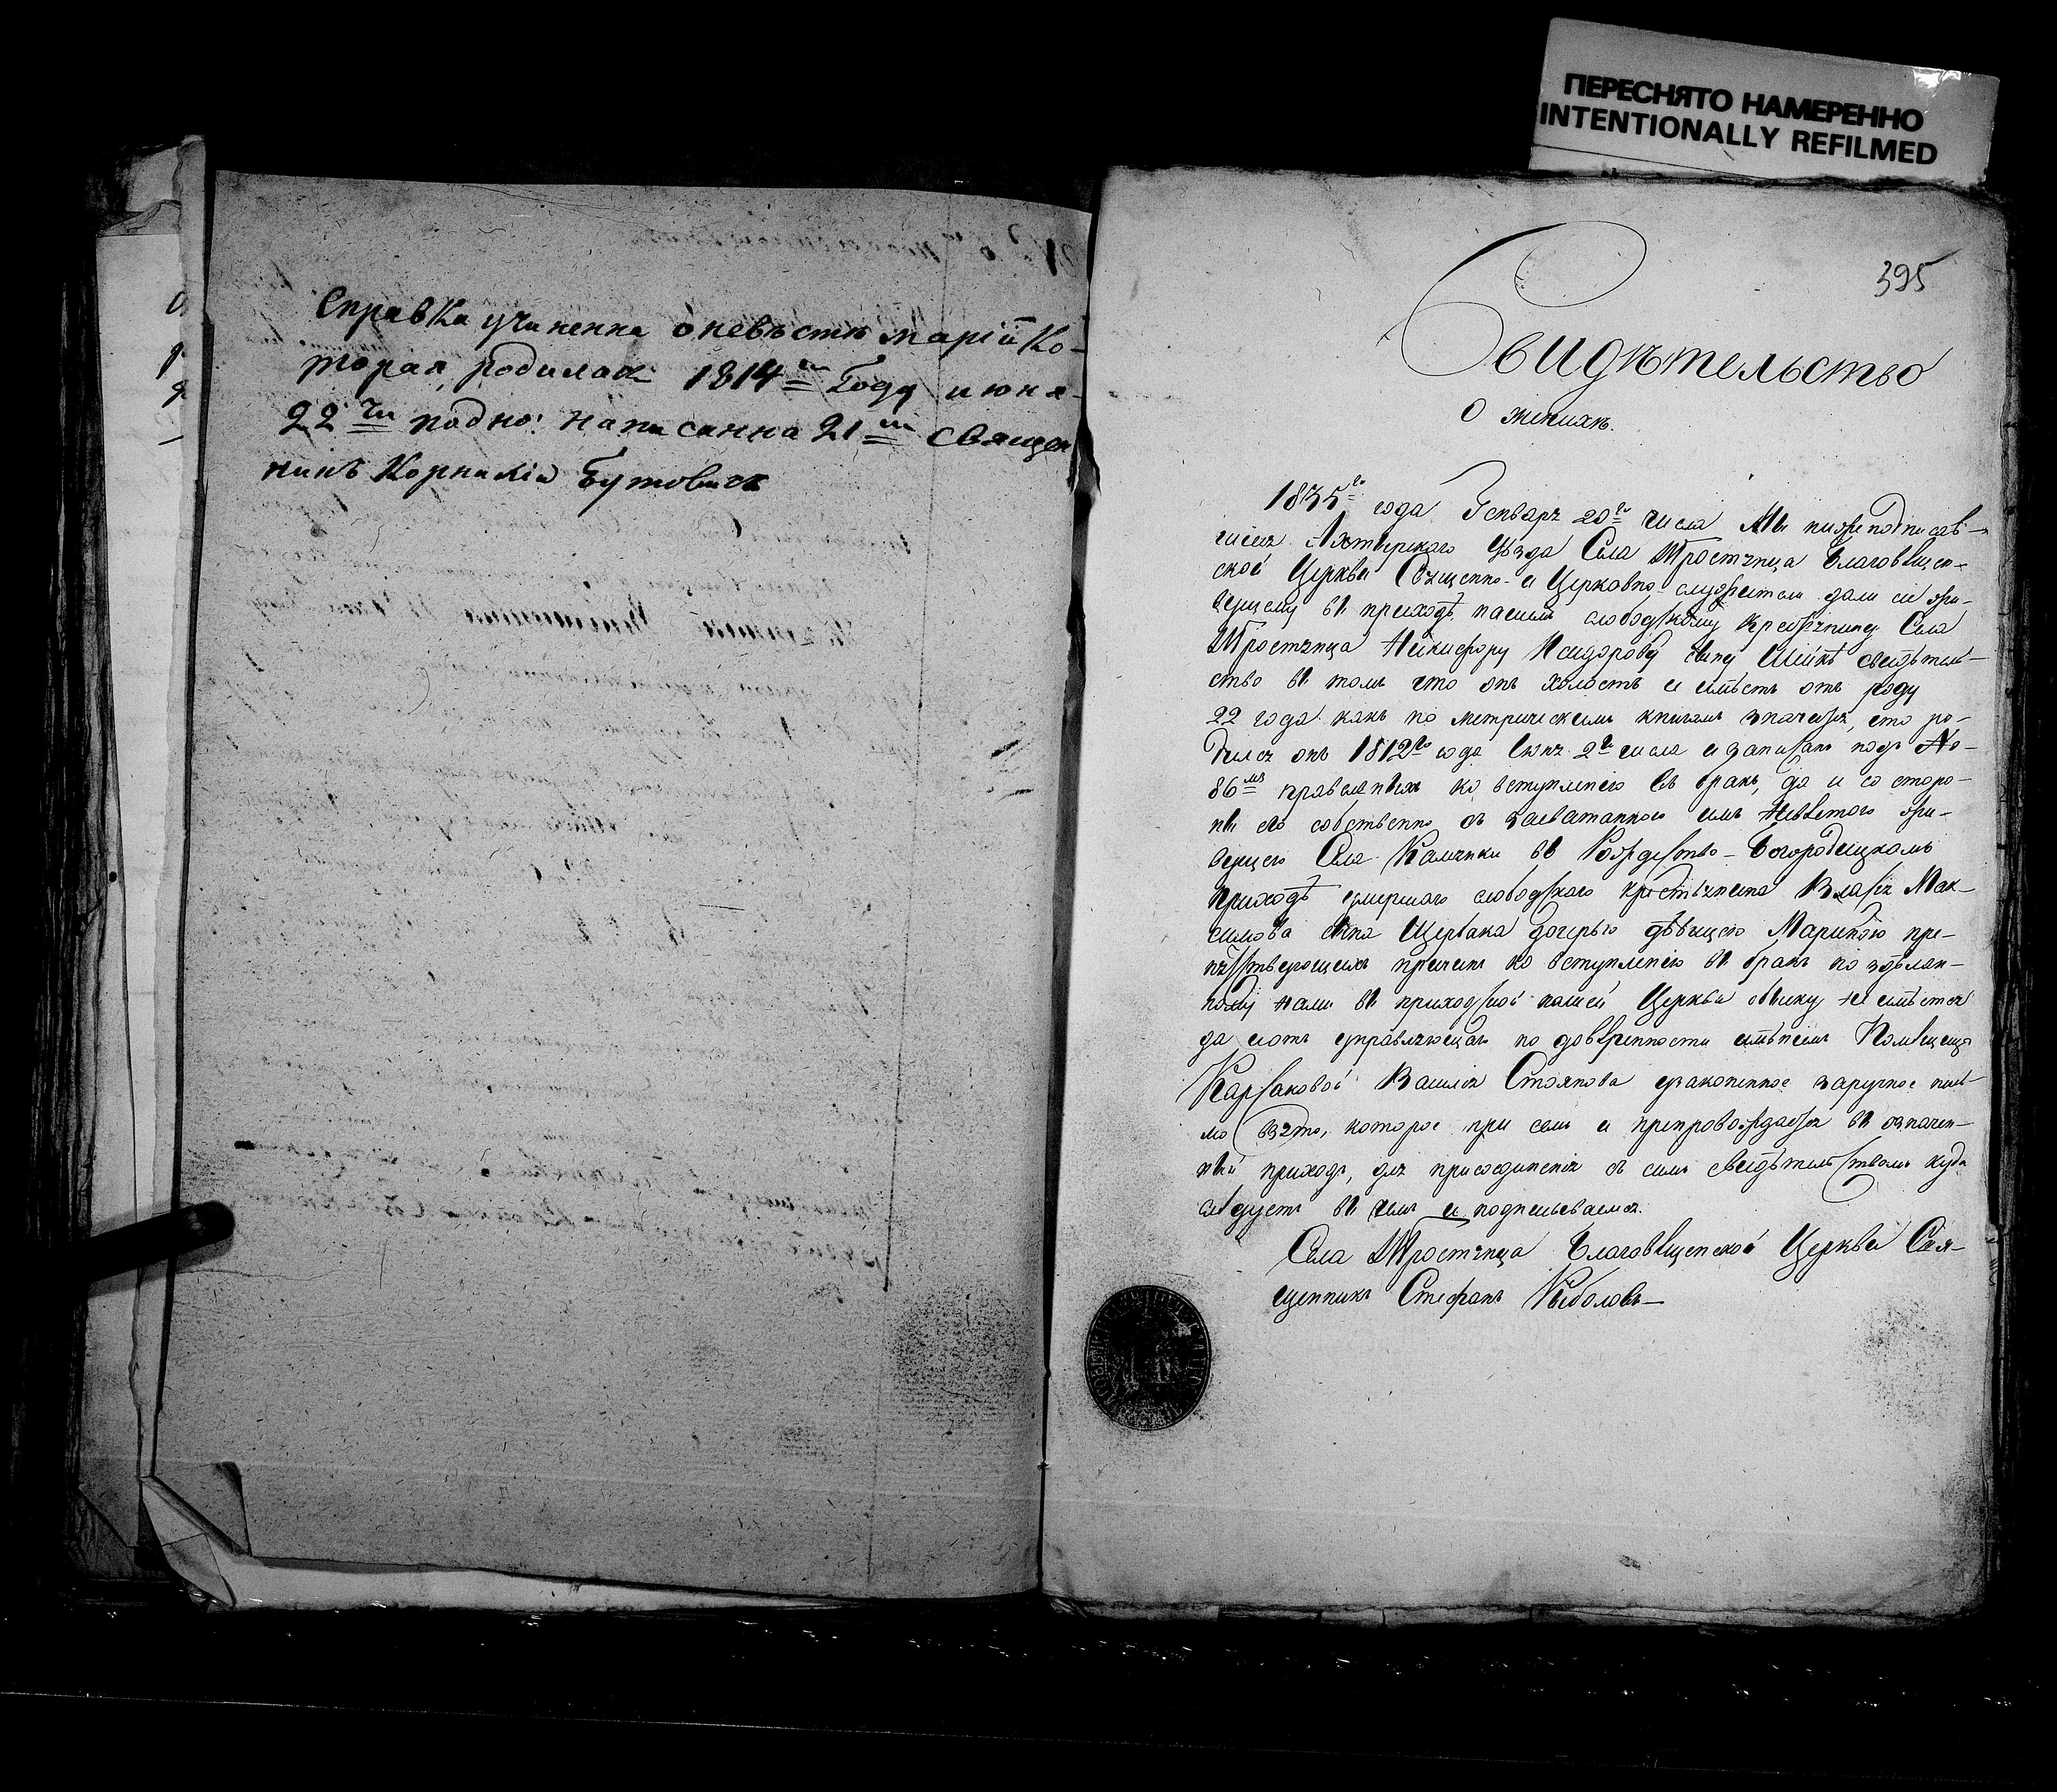 ПЕРЕСНЯТО НАМЕРЕННО
INTENTIONALLY REFILMED
Справка учиненна о невѣстѣ маріи ко-
торая родилась 1814го Году июня
22го подно: написанна 21м Священ
никъ Корнилій Бутовичъ
395
Свидѣтельство
О женихѣ.
1835го года Генваря 20го числа Мы нижеподписав-
шіеся Ахтырскаго уѣзда Села Тростянца Благовѣщен-
ской Церкви Священно- и Церковно-служители дали сіе жи-
вущему въ приходѣ нашемъ слободскому крестьянину Села
Тростянца Никифору Исидорову сыну Шейкѣ свидѣтель-
ство въ томъ что онъ холостъ и имѣетъ отъ роду
22 года какъ по метрическимъ книгамъ значится, что ро-
дился онъ 1812го года Іюня 2го числа и записанъ подъ No-
86мъ правильныхъ ко вступленію въ бракъ, да и со сторо-
ны его собственно съ засватанною имъ Невѣстою жи-
вущего Села Камянки въ Рождество-Богородицкомъ
приходѣ умершаго слободскаго крестьянина Власія Мак-
симова сына Щербака дочерью дѣвицею Мариною пре-
пятствующихъ причинъ ко вступленію въ бракъ по здѣлан-
ному нами въ приходской нашей Церкви обыску не имѣется
да и отъ управляющаго по довѣренности имѣніемъ Помѣщицы
Карсаковой Василія Стоянова узаконенное заручное пись-
мо взято, которое при семъ и препровождается въ означен-
ный приходъ, для присоединенія съ симъ свидѣтельствомъ куда
слѣдуетъ въ чемъ и подписываемся.
Села Тростянца Благовѣщенской Церкви Свя-
щенникъ Стефанъ Рыболовъ